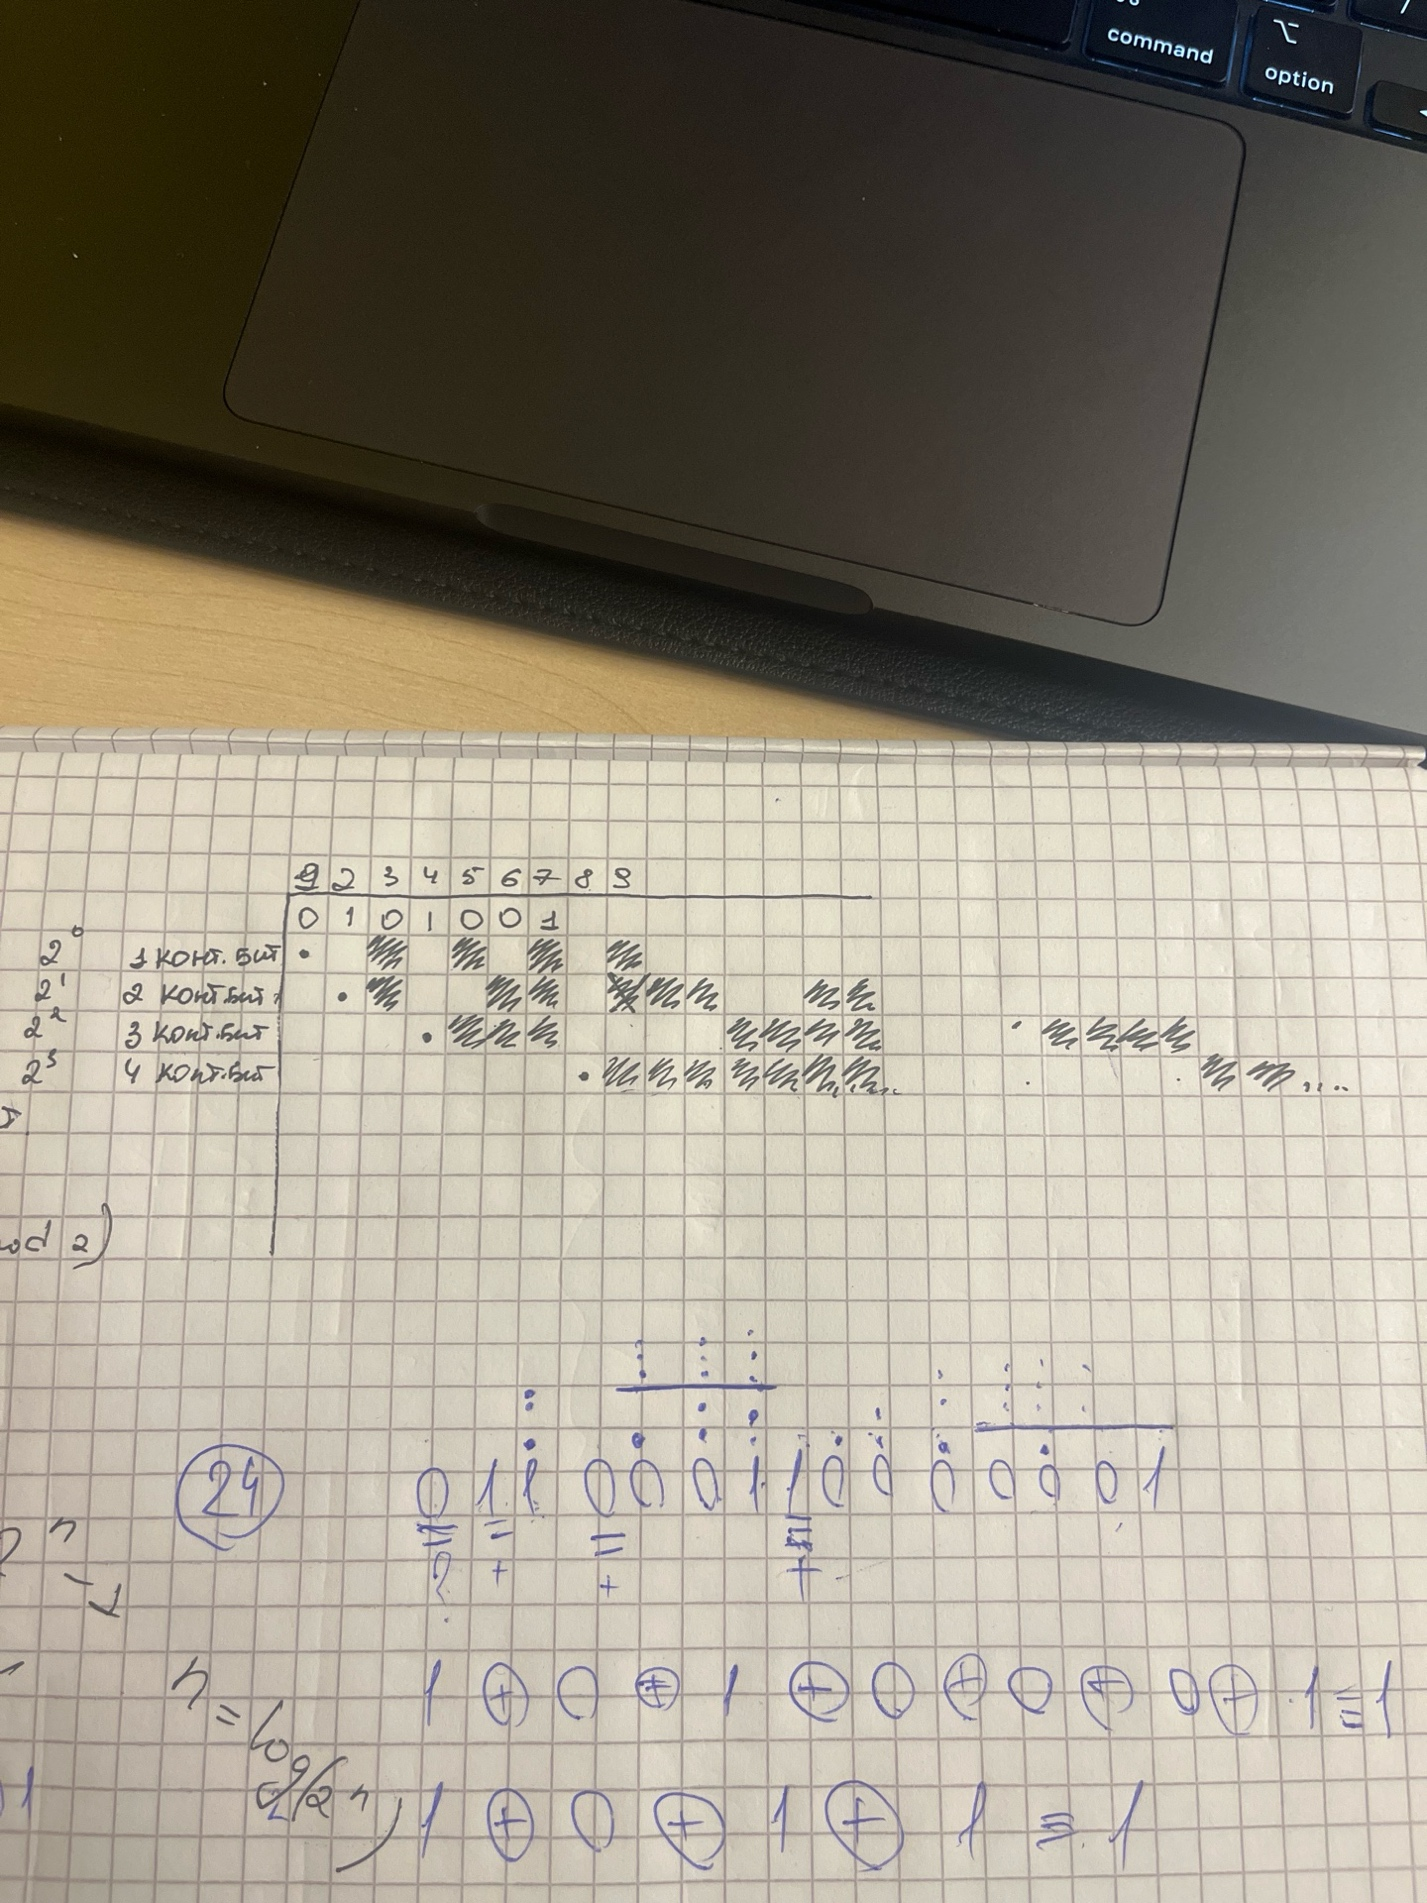 command
option
1 2 3 4 5 6 7 8 9
0 1 0 1 0 0 1
2⁰ 1 конт. бит
2¹ 2 конт. бит
2² 3 конт. бит
2³ 4 конт. бит
od 2)
24 0 1 1 0 0 0 1 1 0 0 0 0 0 0 1
? + + +
1 ⊕ 0 ⊕ 1 ⊕ 0 ⊕ 0 ⊕ 0 ⊕ 1 ≡ 1
n = log
1 ⊕ 0 ⊕ 1 ⊕ 1 ≡ 1